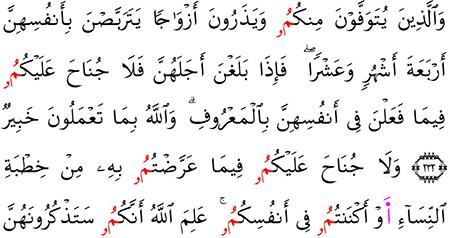 وَٱلَّذِينَ يُتَوَفَّوْنَ مِنكُمُۥ وَيَذَرُونَ أَزْوَٰجًا يَتَرَبَّصْنَ بِأَنفُسِهِنَّ
أَرْبَعَةَ أَشْهُرٍ وَعَشْرًا ۖ فَإِذَا بَلَغْنَ أَجَلَهُنَّ فَلَا جُنَاحَ عَلَيْكُمُۥ
فِيمَا فَعَلْنَ فِىٓ أَنفُسِهِنَّ بِٱلْمَعْرُوفِ ۗ وَٱللَّهُ بِمَا تَعْمَلُونَ خَبِيرٌ
﴿٢٣٢﴾ وَلَا جُنَاحَ عَلَيْكُمُۥ فِيمَا عَرَّضْتُمُۥ بِهِۦ مِنْ خِطْبَةِ
ٱلنِّسَآءِ أَوْ أَكْنَنتُمُۥ فِىٓ أَنفُسِكُمُۥ ۚ عَلِمَ ٱللَّهُ أَنَّكُمُۥ سَتَذْكُرُونَهُنَّ